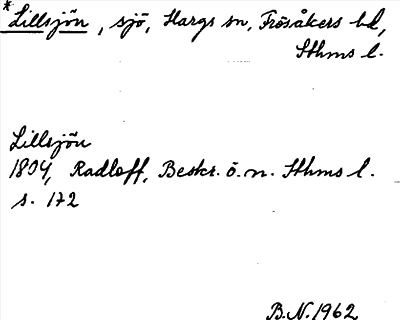 *Lillsjön, sjö, Hargs sn, Frösåkers hd,
Sthms l.
Lillsjön
1804, Radloff, Beskr. ö. n. Sthms l.
s. 172
B.N. 1962